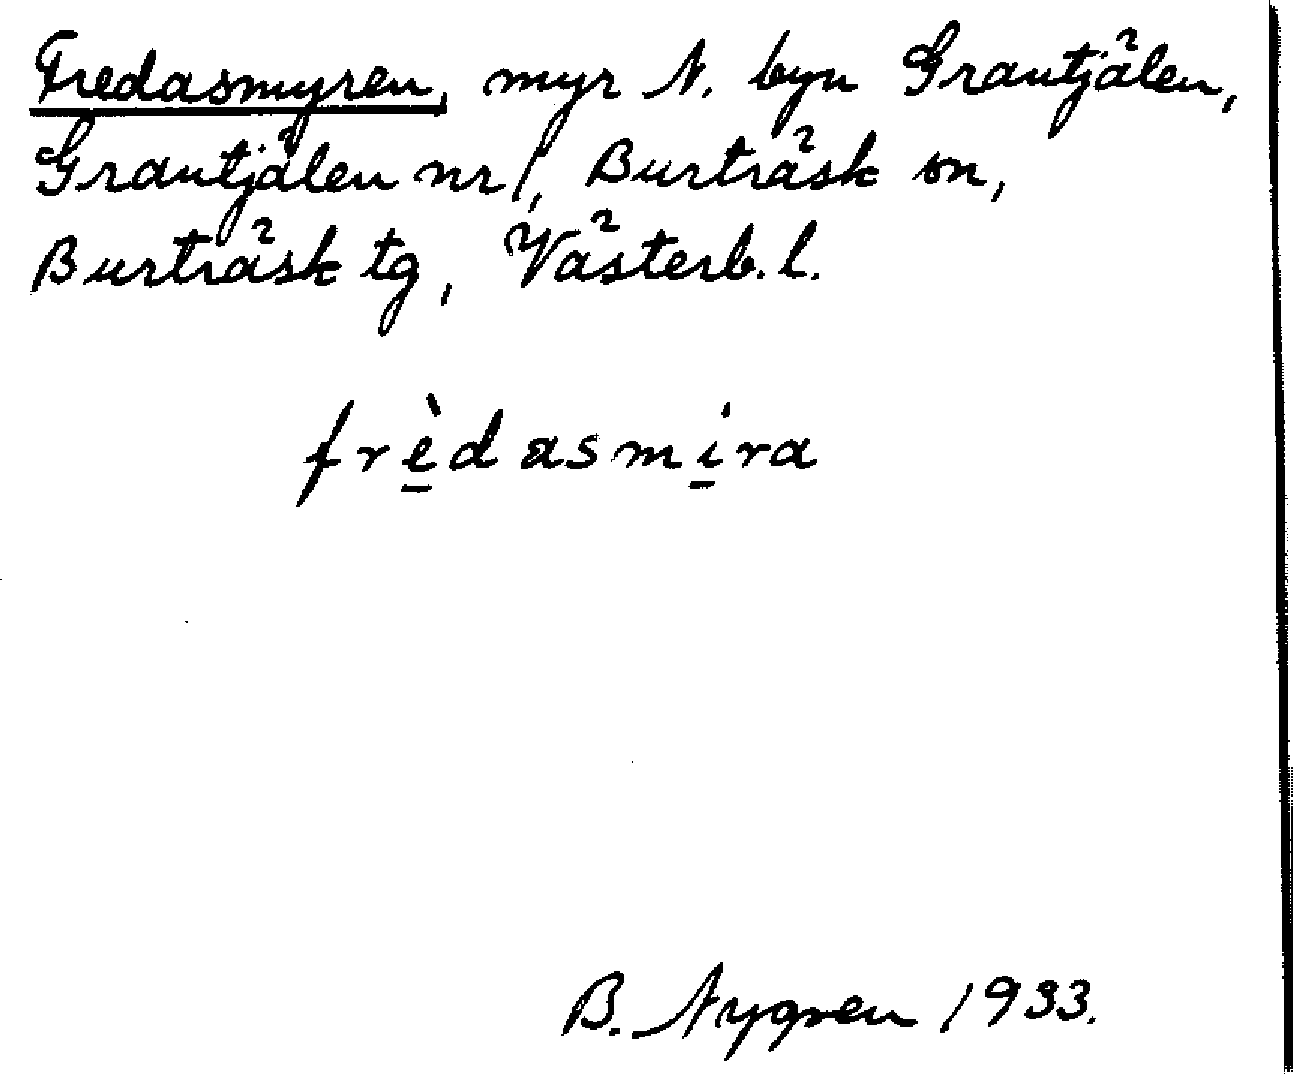 Fredasmyren, myr N. byn Grantjälen,
Grantjälen nr 1, Burträsk sn,
Burträsk tg, Västerb. l.
frèdasmira
B. Nygren 1933.